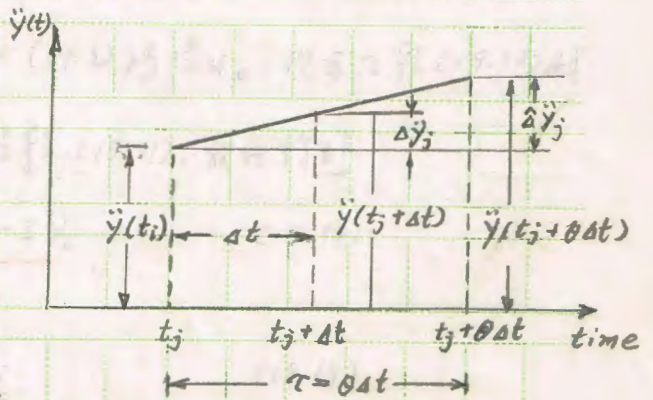 ÿ(t)
Δÿj
Δ̂ÿj
ÿ(ti)
Δt
ÿ(tj+Δt)
ÿ(tj+θΔt)
tj
tj+Δt
tj+θΔt
time
τ=θΔt